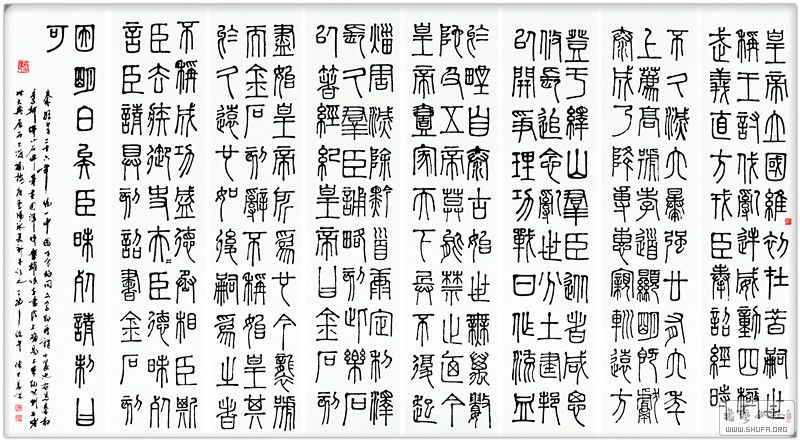 皇帝立國維初在昔嗣世
稱王討伐亂逆威動四極
武義直方戎臣奉詔經時
不久滅六暴強廿有六年
上薦高號孝道顯明既獻
泰成乃降專惠親巡遠方
登于繹山群臣從者咸思
攸長追念亂世分土建邦
以開爭理功戰日作流血
於野自泰古始世無萬數
陀及五帝莫能禁止迺今
皇帝壹家天下兵不復起
災害滅除黔首康定利澤
長久群臣誦略刻此樂石
以著經紀皇帝曰金石刻
盡始皇帝所為也今襲號
而金石刻辭不稱始皇其
於久遠也如後嗣為之者
不稱成功盛德丞相臣斯
臣去疾御史夫臣德昧死
言臣請具刻詔書金石刻
因明白矣臣昧死請制曰
可
WWW.SHUFA.ORG